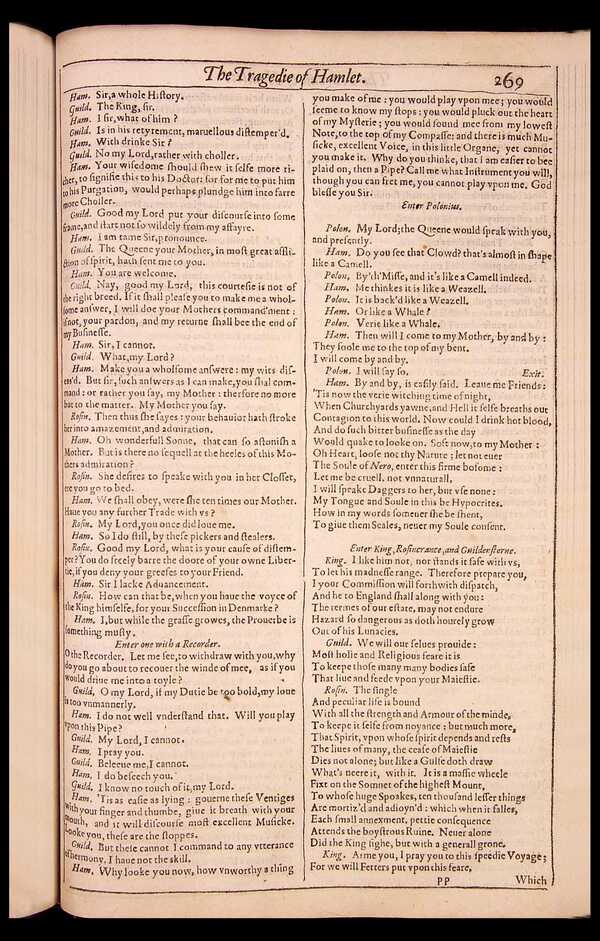 The Tragedie of Hamlet.
269
Ham. Sir, a whole History.
Guild. The King, sir.
Ham. I sir, what of him?
Guild. Is in his retyrement, maruellous distemper'd.
Ham. With drinke Sir?
Guild. No my Lord, rather with choller.
Ham. Your wisedome should shew it selfe more ri-
cher, to signifie this to his Doctor: for for me to put him
to his Purgation, would perhaps plundge him into farre
more Choller.
Guild. Good my Lord put your discourse into some
frame, and start not so wildely from my affayre.
Ham. I am tame Sir, pronounce.
Guild. The Queene your Mother, in most great affli-
ction of spirit, hath sent me to you.
Ham. You are welcome.
Guild. Nay, good my Lord, this courtesie is not of
the right breed. If it shall please you to make me a whol-
some answer, I will doe your Mothers command'ment:
if not, your pardon, and my returne shall bee the end of
my Businesse.
Ham. Sir, I cannot.
Guild. What, my Lord?
Ham. Make you a wholsome answere: my wits dis-
eas'd. But sir, such answers as I can make, you shal com-
mand: or rather you say, my Mother: therfore no more
but to the matter. My Mother you say.
Rosin. Then thus she sayes: your behauior hath stroke
her into amazement, and admiration.
Ham. Oh wonderfull Sonne, that can so astonish a
Mother. But is there no sequell at the heeles of this Mo-
thers admiration?
Rosin. She desires to speake with you in her Closset,
ere you go to bed.
Ham. We shall obey, were she ten times our Mother.
Haue you any further Trade with vs?
Rosin. My Lord, you once did loue me.
Ham. So I do still, by these pickers and stealers.
Rosin. Good my Lord, what is your cause of distem-
per? You do freely barre the doore of your owne Liber-
tie, if you deny your greefes to your Friend.
Ham. Sir I lacke Aduancement.
Rosin. How can that be, when you haue the voyce of
the King himselfe, for your Succession in Denmarke?
Ham. I, but while the grasse growes, the Prouerbe is
something musty.
Enter one with a Recorder.
O the Recorder. Let me see, to withdraw with you, why
do you go about to recouer the winde of mee, as if you
would driue me into a toyle?
Guild. O my Lord, if my Dutie be too bold, my loue
is too vnmannerly.
Ham. I do not well vnderstand that. Will you play
vpon this Pipe?
Guild. My Lord, I cannot.
Ham. I pray you.
Guild. Beleeue me, I cannot.
Ham. I do beseech you.
Guild. I know no touch of it, my Lord.
Ham. 'Tis as easie as lying: gouerne these Ventiges
with your finger and thumbe, giue it breath with your
mouth, and it will discourse most excellent Musicke.
Looke you, these are the stoppes.
Guild. But these cannot I command to any vtterance
of hermony, I haue not the skill.
Ham. Why looke you now, how vnworthy a thing
you make of me: you would play vpon mee; you would
seeme to know my stops: you would pluck out the heart
of my Mysterie; you would sound mee from my lowest
Note, to the top of my Compasse: and there is much Mu-
sicke, excellent Voice, in this little Organe, yet cannot
you make it. Why do you thinke, that I am easier to bee
plaid on, then a Pipe? Call me what Instrument you will,
though you can fret me, you cannot play vpon me. God
blesse you Sir.
Enter Polonius.
Polon. My Lord; the Queene would speak with you,
and presently.
Ham. Do you see that Clowd? that's almost in shape
like a Camell.
Polon. By'th'Misse, and it's like a Camell indeed.
Ham. Me thinkes it is like a Weazell.
Polon. It is back'd like a Weazell.
Ham. Or like a Whale?
Polon. Verie like a Whale.
Ham. Then will I come to my Mother, by and by:
They foole me to the top of my bent.
I will come by and by.
Polon. I will say so. Exit.
Ham. By and by, is easily said. Leaue me Friends:
'Tis now the verie witching time of night,
When Churchyards yawne, and Hell it selfe breaths out
Contagion to this world. Now could I drink hot blood,
And do such bitter businesse as the day
Would quake to looke on. Soft now, to my Mother:
Oh Heart, loose not thy Nature; let not euer
The Soule of Nero, enter this firme bosome:
Let me be cruell, not vnnaturall,
I will speake Daggers to her, but vse none:
My Tongue and Soule in this be Hypocrites.
How in my words someuer she be shent,
To giue them Seales, neuer my Soule consent.
Enter King, Rosincrance, and Guildensterne.
King. I like him not, nor stands it safe with vs,
To let his madnesse range. Therefore prepare you,
I your Commission will forthwith dispatch,
And he to England shall along with you:
The termes of our estate, may not endure
Hazard so dangerous as doth hourely grow
Out of his Lunacies.
Guild. We will our selues prouide:
Most holie and Religious feare it is
To keepe those many many bodies safe
That liue and feede vpon your Maiestie.
Rosin. The single
And peculiar life is bound
With all the strength and Armour of the minde,
To keepe it selfe from noyance: but much more,
That Spirit, vpon whose spirit depends and rests
The liues of many, the cease of Maiestie
Dies not alone; but like a Gulfe doth draw
What's neere it, with it. It is a massie wheele
Fixt on the Somnet of the highest Mount,
To whose huge Spoakes, ten thousand lesser things
Are mortiz'd and adioyn'd: which when it falles,
Each small annexment, pettie consequence
Attends the boystrous Ruine. Neuer alone
Did the King sighe, but with a generall grone.
King. Arme you, I pray you to this speedie Voyage;
For we will Fetters put vpon this feare,
pp
Which